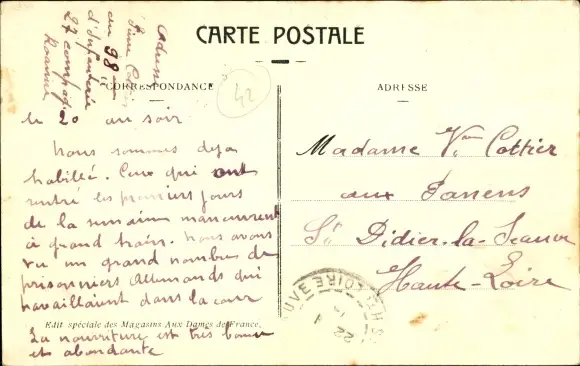 CARTE POSTALE
CORRESPONDANCE
ADRESSE
adresse
Cottier
au 98
d'Infanterie
27 compag
Roanne
42
le 20 au soir
Nous sommes deja
habillé. Ceux qui ont
rentré les premiers jours
de la semaine manoeuvrent
à grand train. Nous avons
vu un grand nombre de
prisonniers Allemands qui
travaillaient dans la cour
Edit spéciale des Magasins Aux Dames de France.
La nourriture est très bonne
et abondante
Madame Vve Cottier
aux
St Didier-la-Seauve
Haute-Loire
22
LOIRE